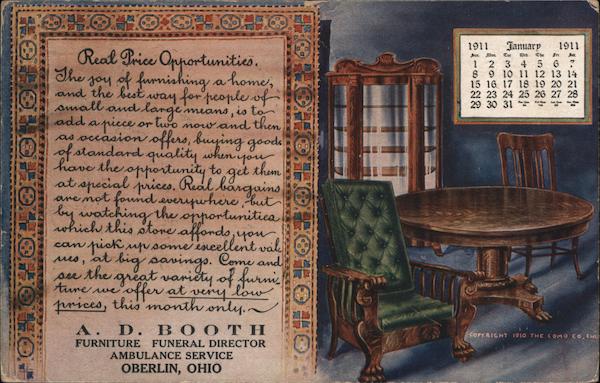 Real Price Opportunities.
The joy of furnishing a home,
and the best way for people of
small and large means, is to
add a piece or two now and then
as occasion offers, buying goods
of standard quality when you
have the opportunity to get them
at special prices. Real bargains
are not found everywhere, but
by watching the opportunities
which this store affords, you
can pick up some excellent val-
ues, at big savings. Come and
see the great variety of furni-
ture we offer at very low
prices, this month only.
A. D. BOOTH
FURNITURE FUNERAL DIRECTOR
AMBULANCE SERVICE
OBERLIN, OHIO
1911 January 1911
Sun. Mon. Tue. Wed. Thu. Fri. Sat.
1 2 3 4 5 6 7
8 9 10 11 12 13 14
15 16 17 18 19 20 21
22 23 24 25 26 27 28
29 30 31
COPYRIGHT 1910 THE COMO CO.,